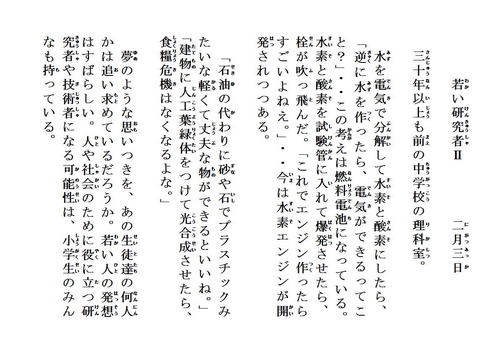 若い研究者Ⅱ　　二月三日
三十年以上も前の中学校の理科室。
水を電気で分解して水素と酸素にしたら、
「逆に水を作ったら、電気ができるってこ
と？」・・この考えは燃料電池になっている。
水素と酸素を試験管に入れて爆発させたら、
栓が吹っ飛んだ。「これでエンジン作ったら
すごいよねえ。」・・今は水素エンジンが開
発されつつある。
「石油の代わりに砂や石でプラスチックみ
たいな軽くて丈夫な物ができるといいね。」
「建物に人工葉緑体をつけて光合成させたら、
食糧危機はなくなるよな。」
夢のような思いつきを、あの生徒達の何人
かは追い求めているだろうか。若い人の発想
はすばらしい。人や社会のために役に立つ研
究者や技術者になる可能性は、小学生のみん
なも持っている。